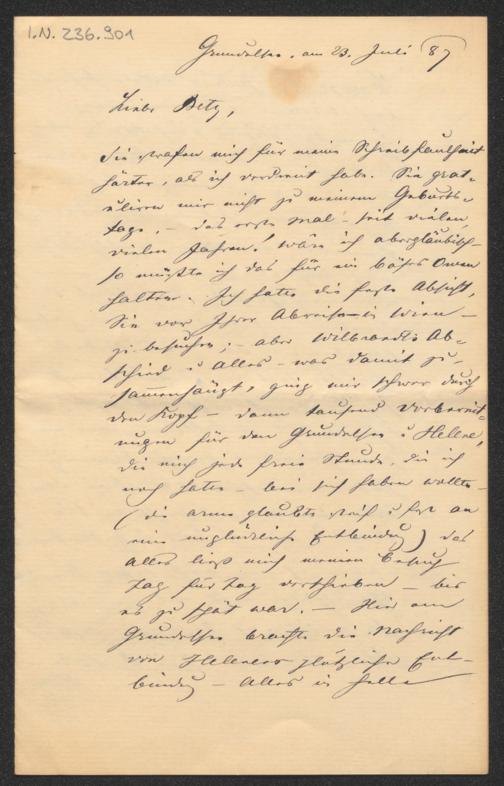 I.N. 236.901
Grundlsee, am 23. Juli 87
Liebe Betty,
Sie strafen mich für meine Schreibfaulheit
härter, als ich verdient habe. Sie grat-
uliren mir nicht zu meinem Geburts-
tage, – das erste Mal – seit vielen,
vielen Jahren! wäre ich abergläubisch –
so müßte ich das für ein böses Omen
halten. Ich hatte die feste Absicht,
Sie vor Ihrer Abreise in Wien –
zu besuchen; – aber Wilbrandts Ab-
schied u Alles – was damit zu-
sammenhängt, ging mir schwer durch
den Kopf – dann tausend Vorbereit-
ungen für den Grundlsee u Helene,
die mich jede freie Stunde, die ich
noch hatte – bei sich haben wollte –
(die arme glaubte steif u fest an
eine unglückliche Entbindung) das
alles ließ mich meinen Besuch
Tag für Tag verschieben – bis
es zu spät war. – Hier am
Grundlsee brachte die Nachricht
von Helenens plötzlicher Ent-
bindung – Alles in helle